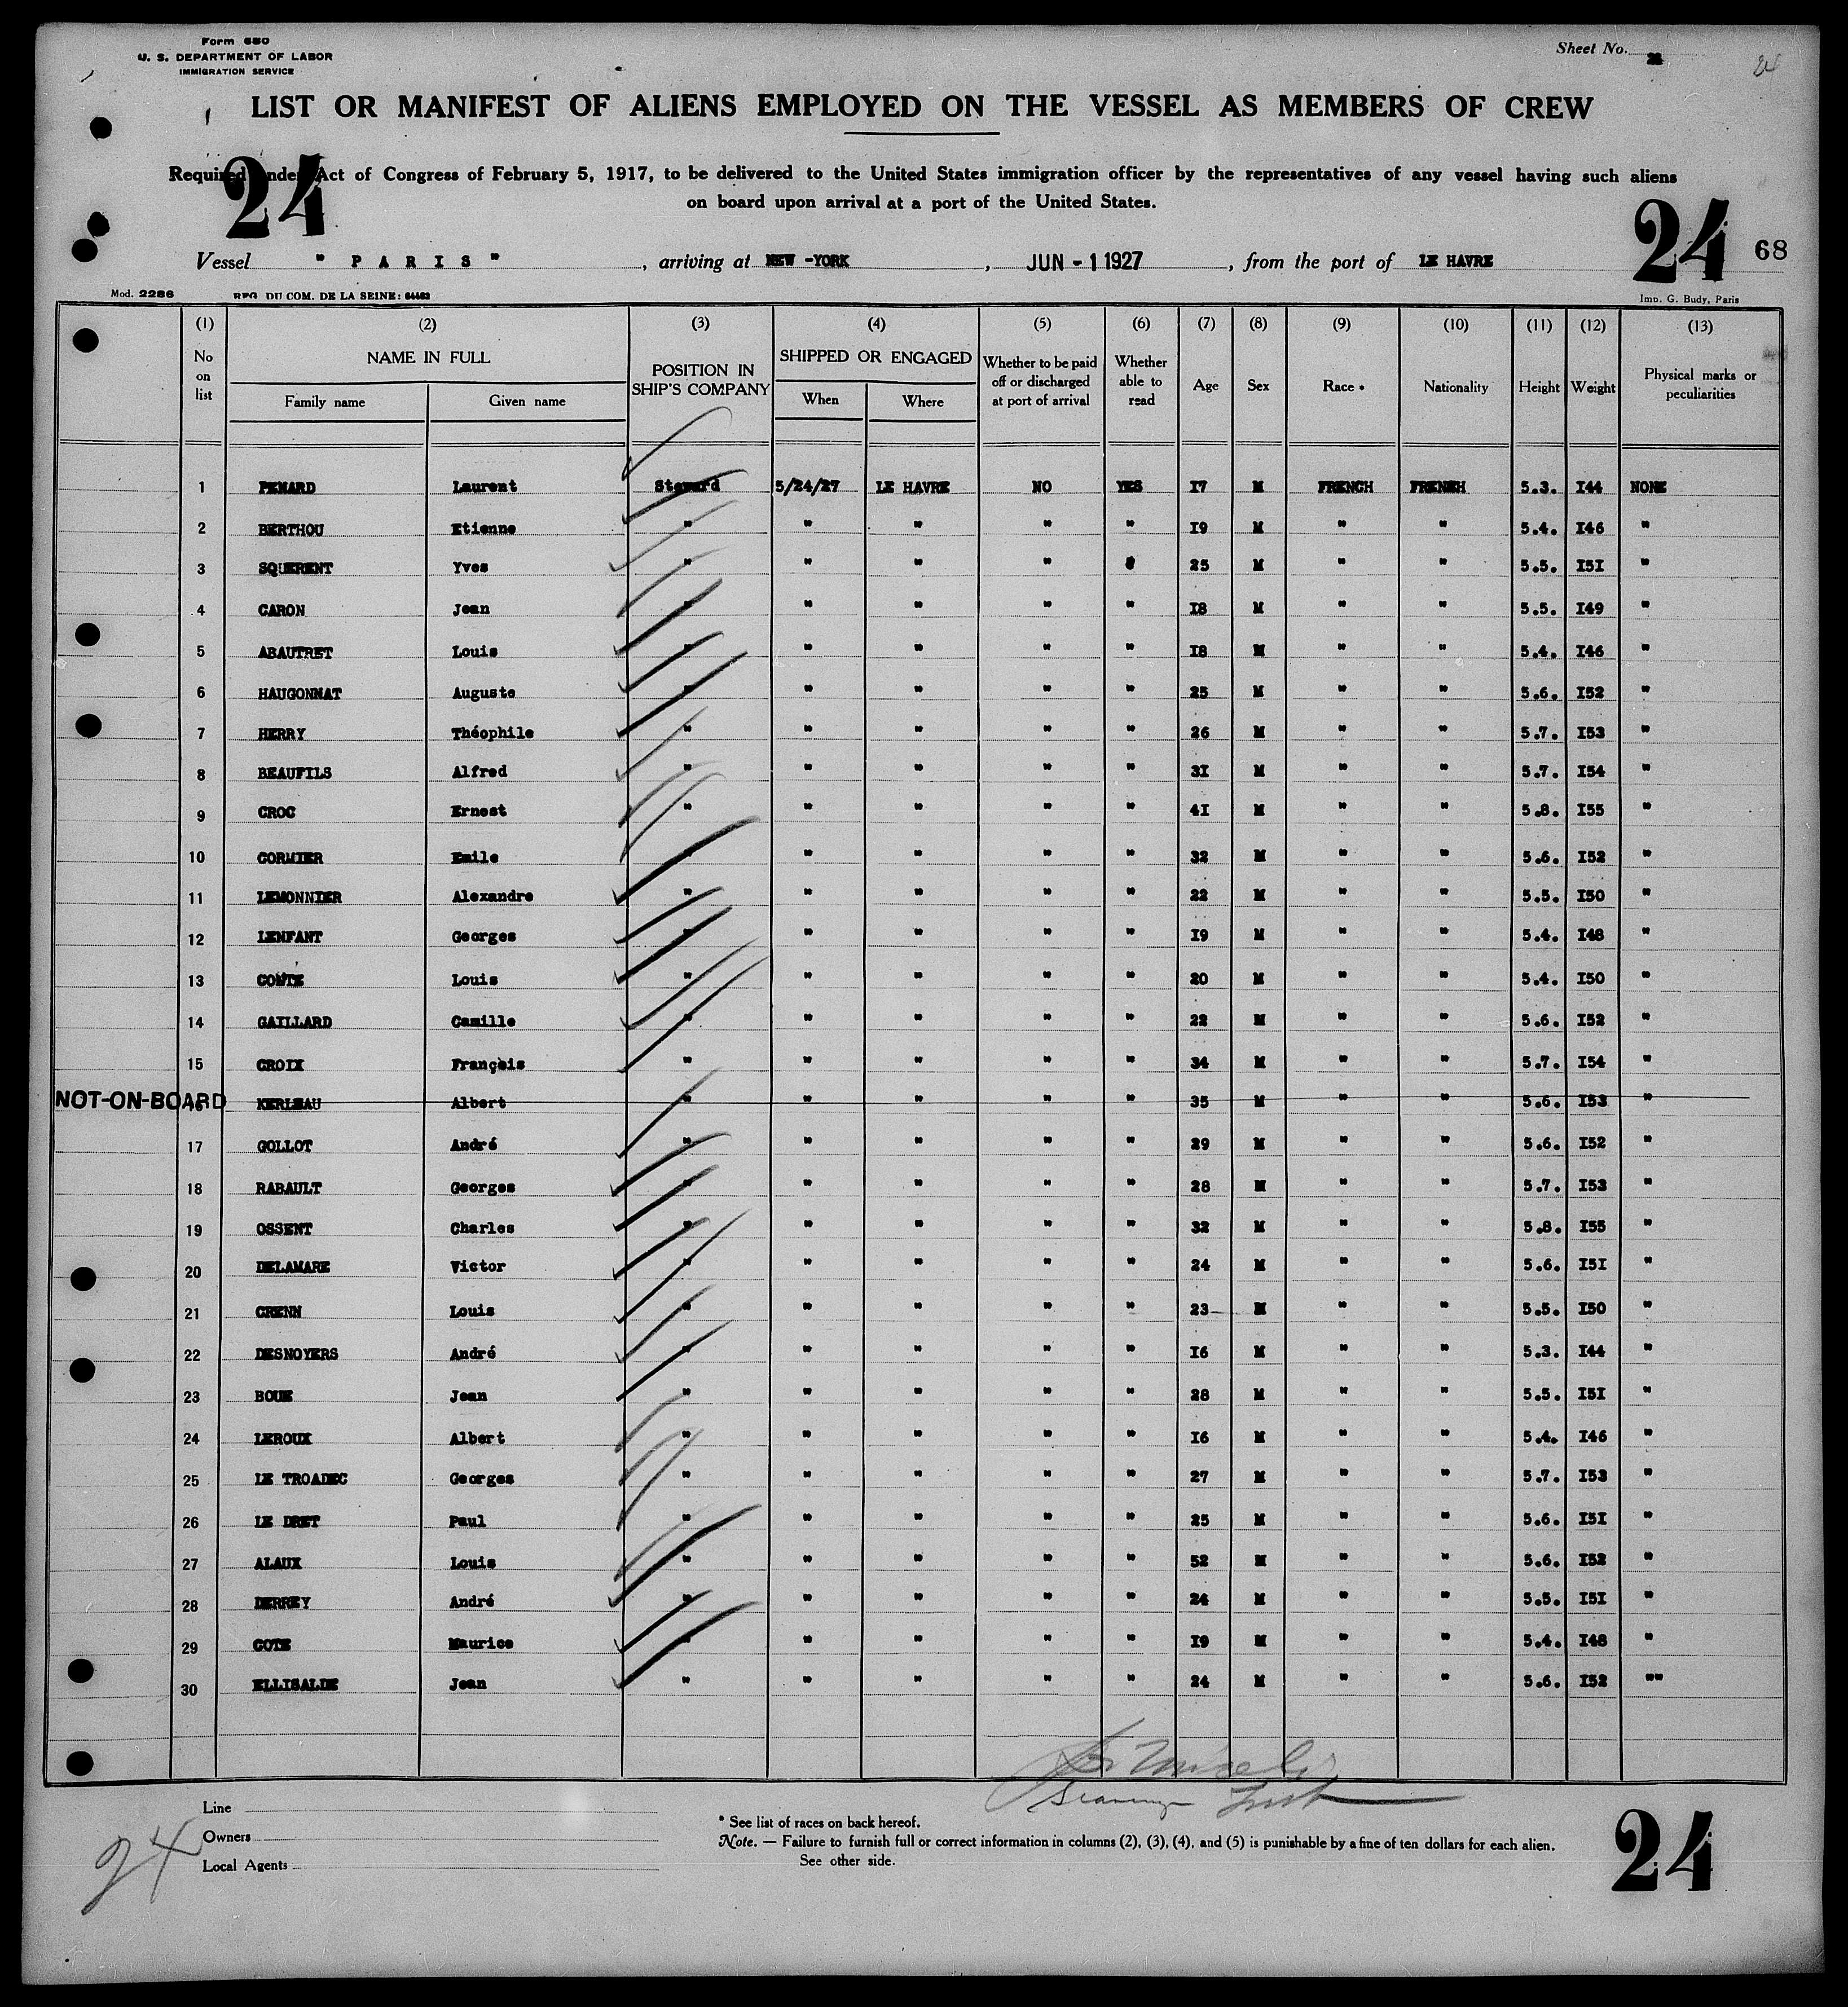 Form 680
U. S. DEPARTMENT OF LABOR
IMMIGRATION SERVICE
Sheet No.
24
LIST OR MANIFEST OF ALIENS EMPLOYED ON THE VESSEL AS MEMBERS OF CREW
24
Required under Act of Congress of February 5, 1917, to be delivered to the United States immigration officer by the representatives of any vessel having such aliens
on board upon arrival at a port of the United States.
24 68
Vessel " P A R I S " , arriving at NEW-YORK , JUN - 1 1927 , from the port of LE HAVRE
Mod. 2286 REG. DU COM. DE LA SEINE: 84482 Imp. G. Budy, Paris
(1) (2) (3) (4) (5) (6) (7) (8) (9) (10) (11) (12) (13)
No on list NAME IN FULL POSITION IN SHIP'S COMPANY SHIPPED OR ENGAGED Whether to be paid off or discharged at port of arrival Whether able to read Age Sex Race * Nationality Height Weight Physical marks or peculiarities
Family name Given name When Where
1 PENARD Laurent Steward 5/24/27 LE HAVRE NO YES 17 M FRENCH FRENCH 5.3. 144 NONE
2 BERTHOU Etienne " " " " " 19 M " " 5.4. 146 "
3 SQUERENT Yves " " " " " 25 M " " 5.5. 151 "
4 CARON Jean " " " " " 18 M " " 5.5. 149 "
5 ABAUTRET Louis " " " " " 18 M " " 5.4. 146 "
6 HAUGONNAT Auguste " " " " " 25 M " " 5.6. 152 "
7 HERRY Théophile " " " " " 26 M " " 5.7. 153 "
8 BEAUFILS Alfred " " " " " 31 M " " 5.7. 154 "
9 CROC Ernest " " " " " 41 M " " 5.8. 155 "
10 CORMIER Emile " " " " " 32 M " " 5.6. 152 "
11 LEMONNIER Alexandre " " " " " 22 M " " 5.5. 150 "
12 LENFANT Georges " " " " " 19 M " " 5.4. 148 "
13 COMTE Louis " " " " " 20 M " " 5.4. 150 "
14 GAILLARD Camille " " " " " 22 M " " 5.6. 152 "
15 CROIX François " " " " " 34 M " " 5.7. 154 "
NOT-ON-BOARD 16 KERLEAU Albert " " " " " 35 M " " 5.6. 153 "
17 GOLLOT André " " " " " 29 M " " 5.6. 152 "
18 RABAULT Georges " " " " " 28 M " " 5.7. 153 "
19 OSSENT Charles " " " " " 32 M " " 5.8. 155 "
20 DELAMARE Victor " " " " " 24 M " " 5.6. 151 "
21 CRENN Louis " " " " " 23 M " " 5.5. 150 "
22 DESNOYERS André " " " " " 16 M " " 5.3. 144 "
23 BOUE Jean " " " " " 28 M " " 5.5. 151 "
24 LEROUX Albert " " " " " 16 M " " 5.4. 146 "
25 LE TROADEC Georges " " " " " 27 M " " 5.7. 153 "
26 LE DRET Paul " " " " " 25 M " " 5.6. 151 "
27 ALAUX Louis " " " " " 52 M " " 5.6. 152 "
28 DERREY André " " " " " 24 M " " 5.5. 151 "
29 COTE Maurice " " " " " 19 M " " 5.4. 148 "
30 ELLISALDE Jean " " " " " 24 M " " 5.6. 152 ""
Line
Owners
Local Agents
24
* See list of races on back hereof.
Note. — Failure to furnish full or correct information in columns (2), (3), (4), and (5) is punishable by a fine of ten dollars for each alien.
See other side.
24